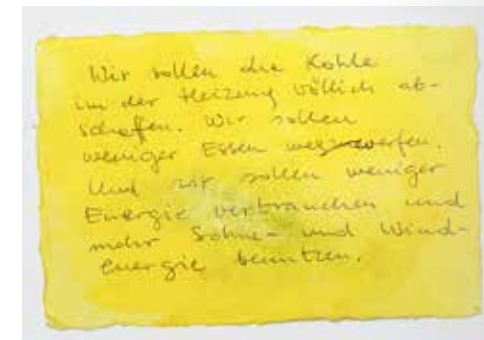 Wir sollen die Kohle
in der Heizung völlich ab-
schaffen. Wir sollen
weniger Essen wegwerfen.
Und wir sollen weniger
Energie verbrauchen und
mehr Sohne- und Wind-
energie benutzen.